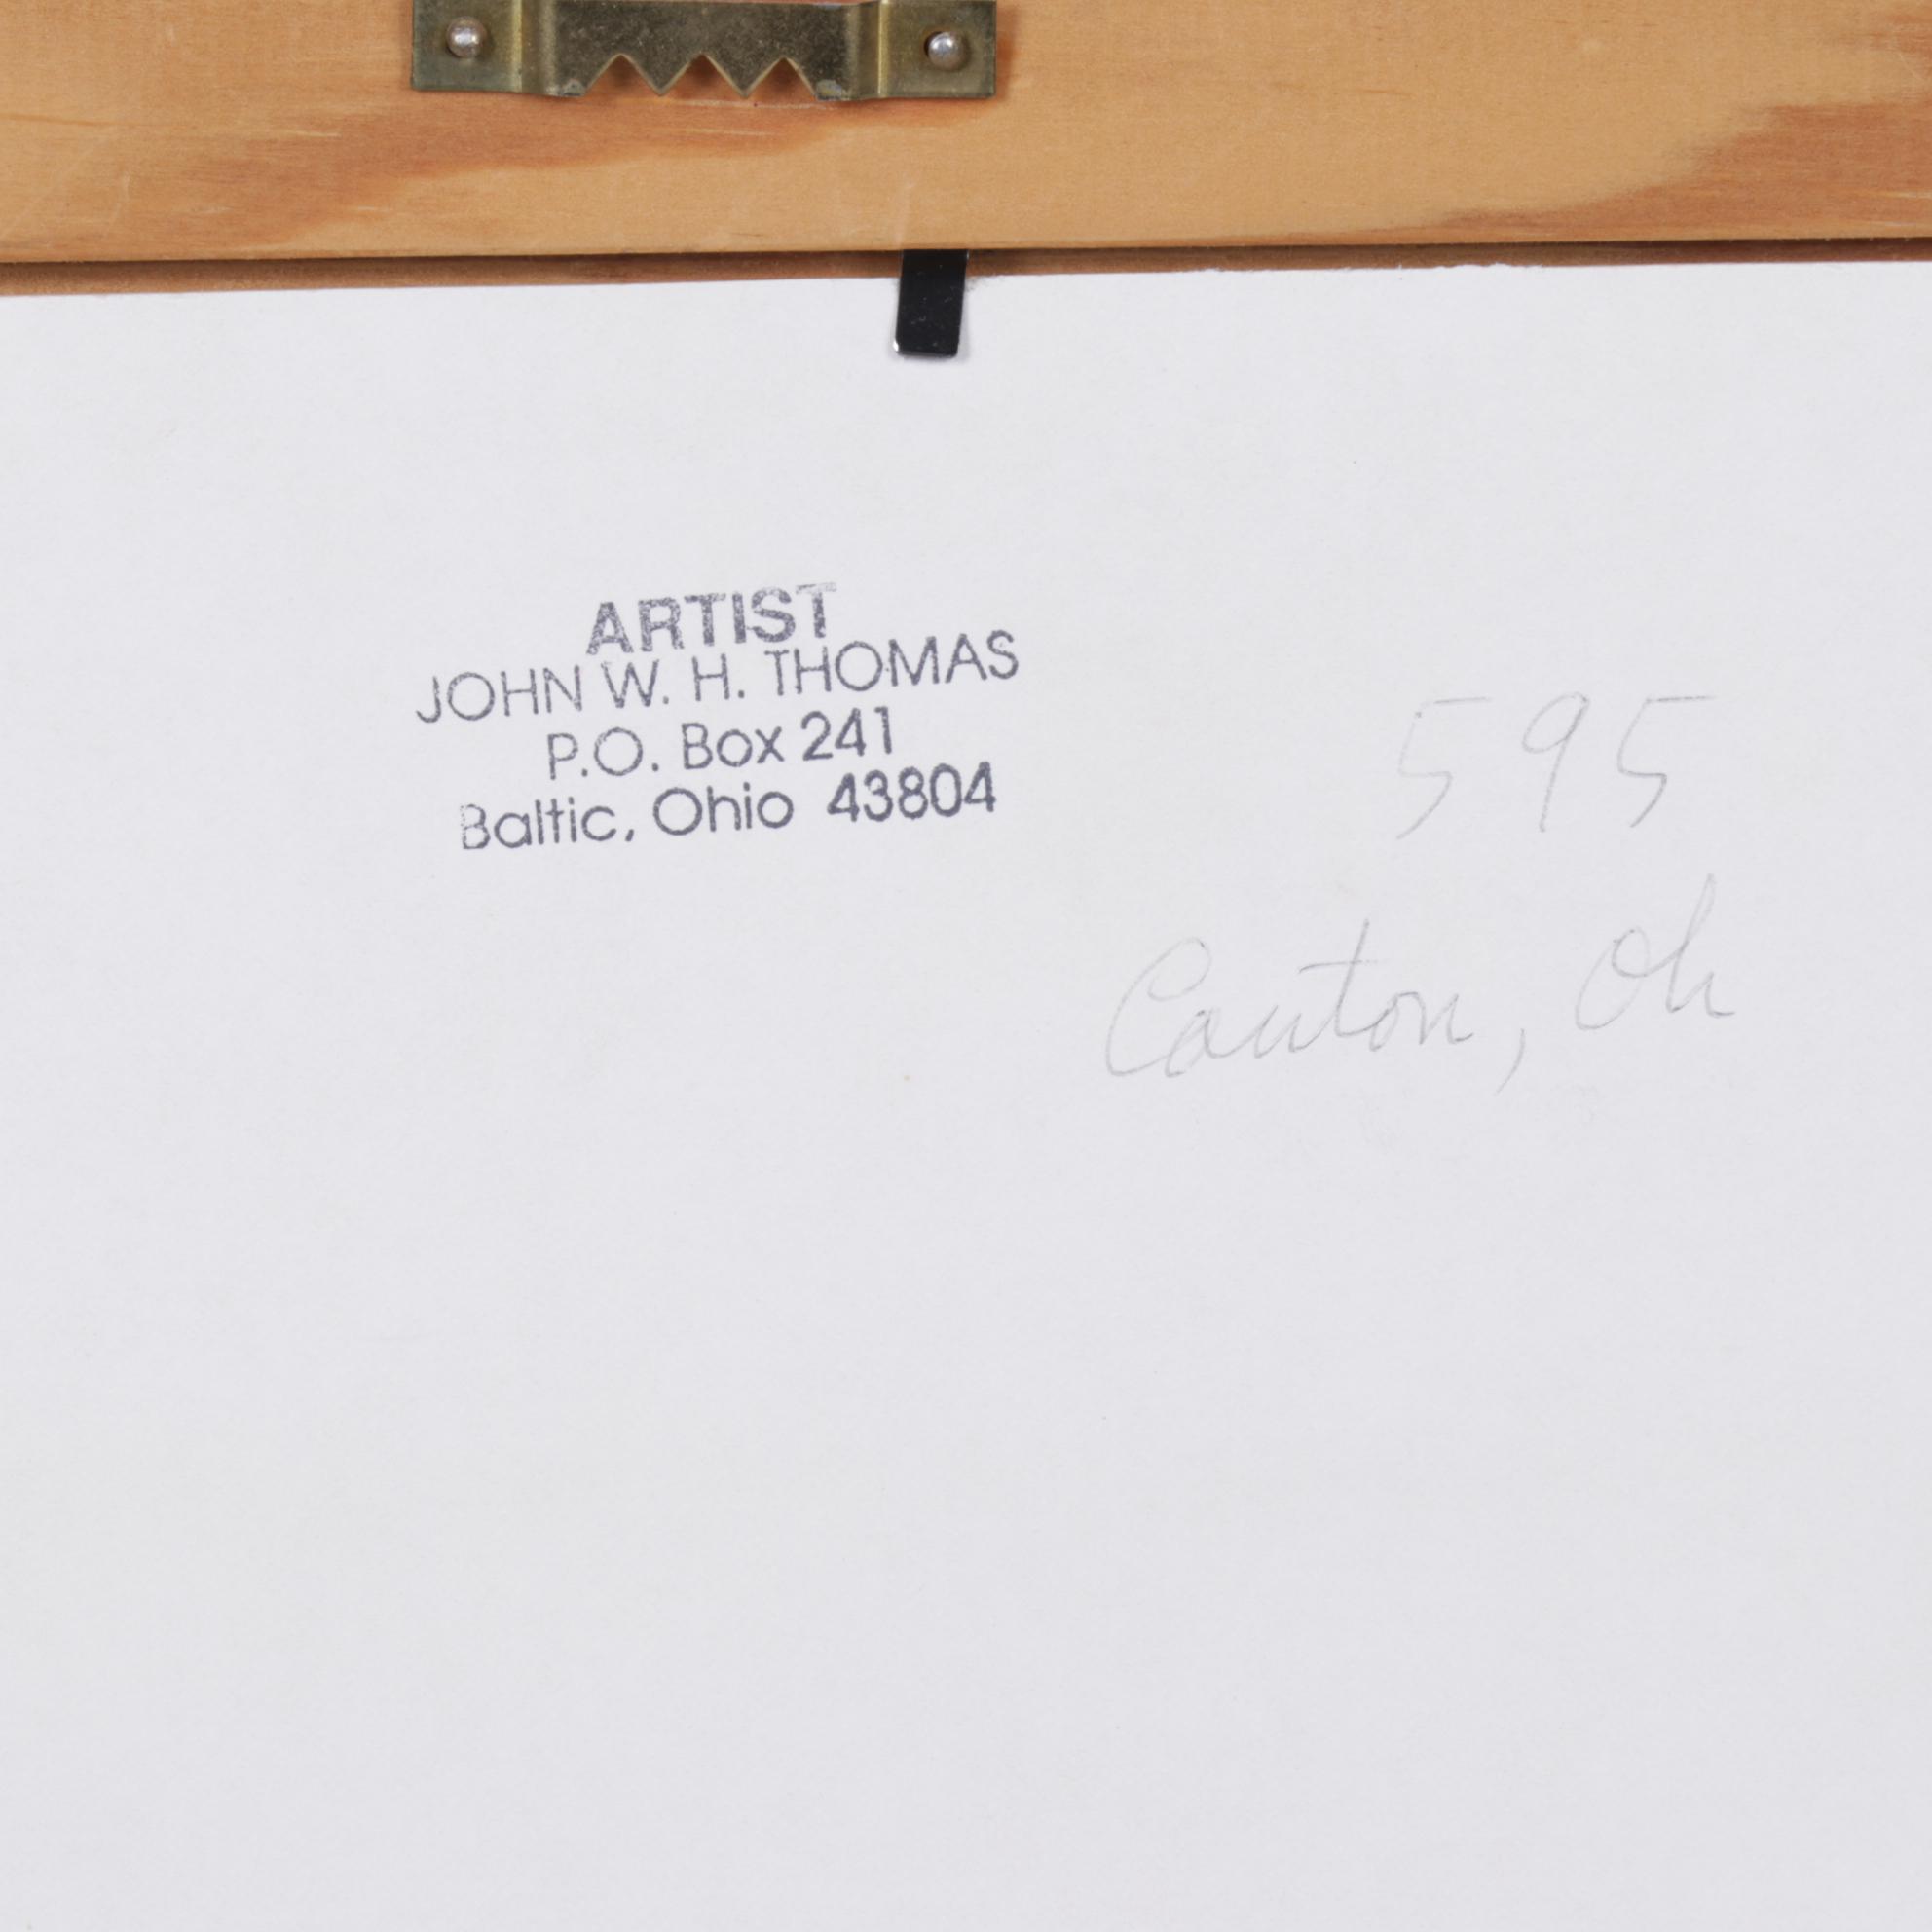 ARTIST
JOHN W. H. THOMAS
P.O. Box 241
Baltic, Ohio 43804
595
Canton, Oh